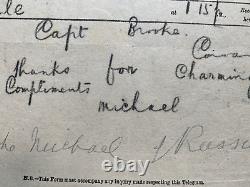 at 1 15
Capt Brooke
Thanks for Charming
Compliments
Michael
Michael of Russi
N.B.—This Form must accompany any inquiry made respecting this Telegram.